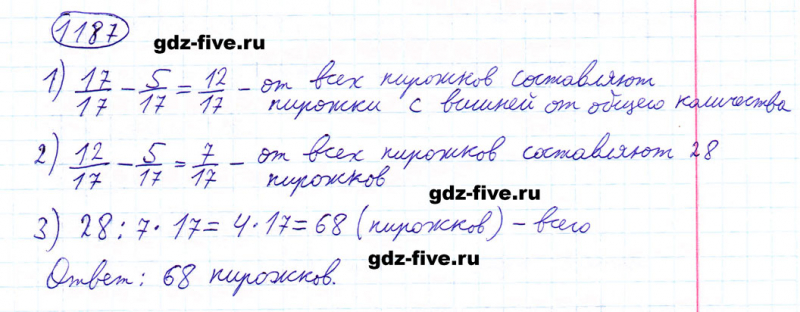 1187
gdz-five.ru
1) 17/17 − 5/17 = 12/17 − от всех пирожков составляют
пирожки с вишней от общего количества
2) 12/17 − 5/17 = 7/17 − от всех пирожков составляют 28
пирожков
gdz-five.ru
3) 28 : 7 · 17 = 4 · 17 = 68 (пирожков) − всего
gdz-five.ru
Ответ: 68 пирожков.